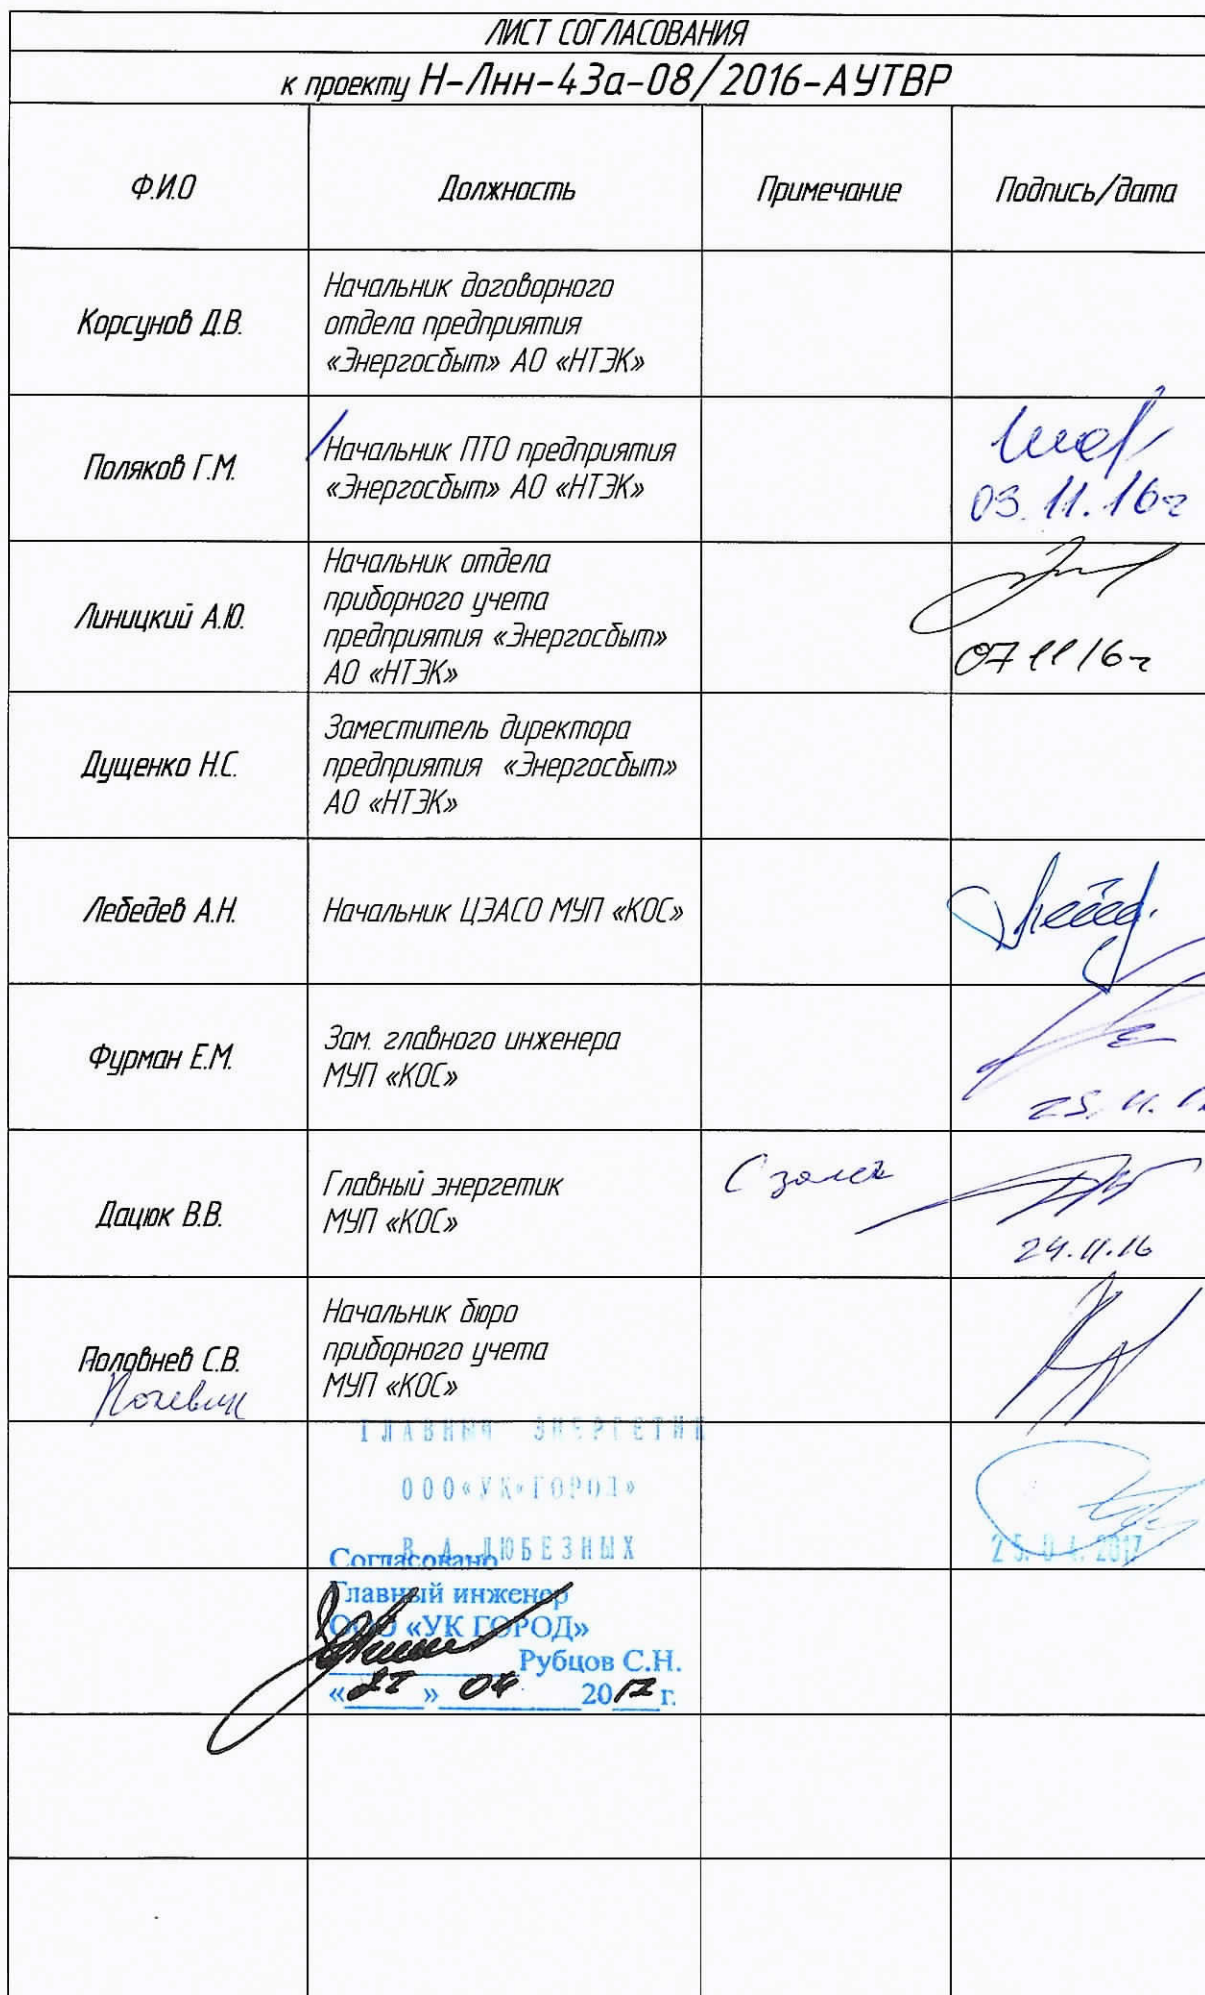 ЛИСТ СОГЛАСОВАНИЯ
к проекту Н-Лнн-43а-08/2016-АУТВР
Ф.И.О Должность Примечание Подпись/дата
Корсунов Д.В.
Начальник договорного
отдела предприятия
«Энергосбыт» АО «НТЭК»
Поляков Г.М.
Начальник ПТО предприятия
«Энергосбыт» АО «НТЭК»
03.11.16г
Линицкий А.Ю.
Начальник отдела
приборного учета
предприятия «Энергосбыт»
АО «НТЭК»
07 11 16г
Дущенко Н.С.
Заместитель директора
предприятия «Энергосбыт»
АО «НТЭК»
Лебедев А.Н.
Начальник ЦЭАСО МУП «КОС»
Фурман Е.М.
Зам. главного инженера
МУП «КОС»
25.11.
Дацюк В.В.
Главный энергетик
МУП «КОС»
С
24.11.16
Половнев С.В.
Начальник бюро
приборного учета
МУП «КОС»
ГЛАВНЫЙ ЭНЕРГЕТИК
ООО«УК«ГОРОД»
В.А. ЛЮБЕЗНЫХ
25.04.2017
Согласовано
Главный инженер
ООО «УК ГОРОД»
Рубцов С.Н.
« » 04 2017 г.